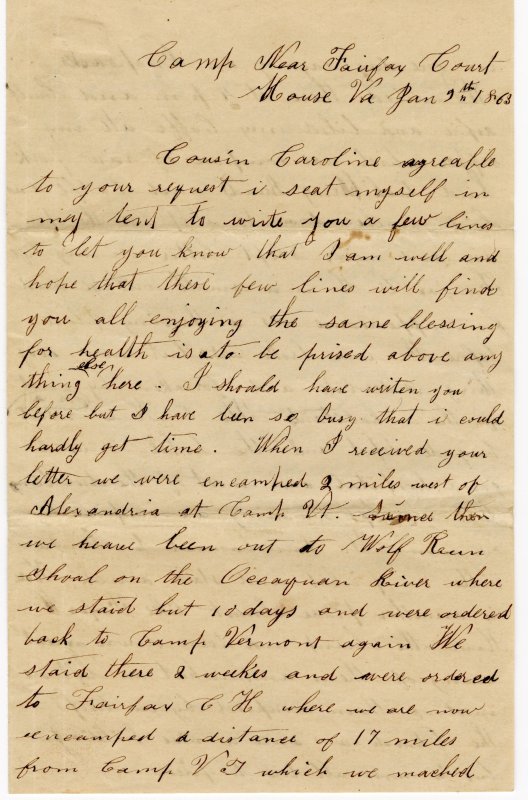 Camp Near Fairfax Court
House Va Jan 9th 1863
Cousin Caroline agreable
to your request i seat myself in
my tent to write you a few lines
to let you know that I am well and
hope that these few lines will find
you all enjoying the same blessing
for health is to be prised above any
thing else here. I should have writen you
before but I have been so busy that i could
hardly get time. When I received your
letter we were encamped 2 miles west of
Alexandria at Camp Vt. Sinnce then
we heave been out to Wolf Reun
Shoal on the Occayuan River where
we staid but 10 days and were ordered
back to Camp Vermont again We
staid there 2 weekes and were ordered
to Fairfax C H where we are now
encamped a distance of 17 miles
from Camp V T which we mached